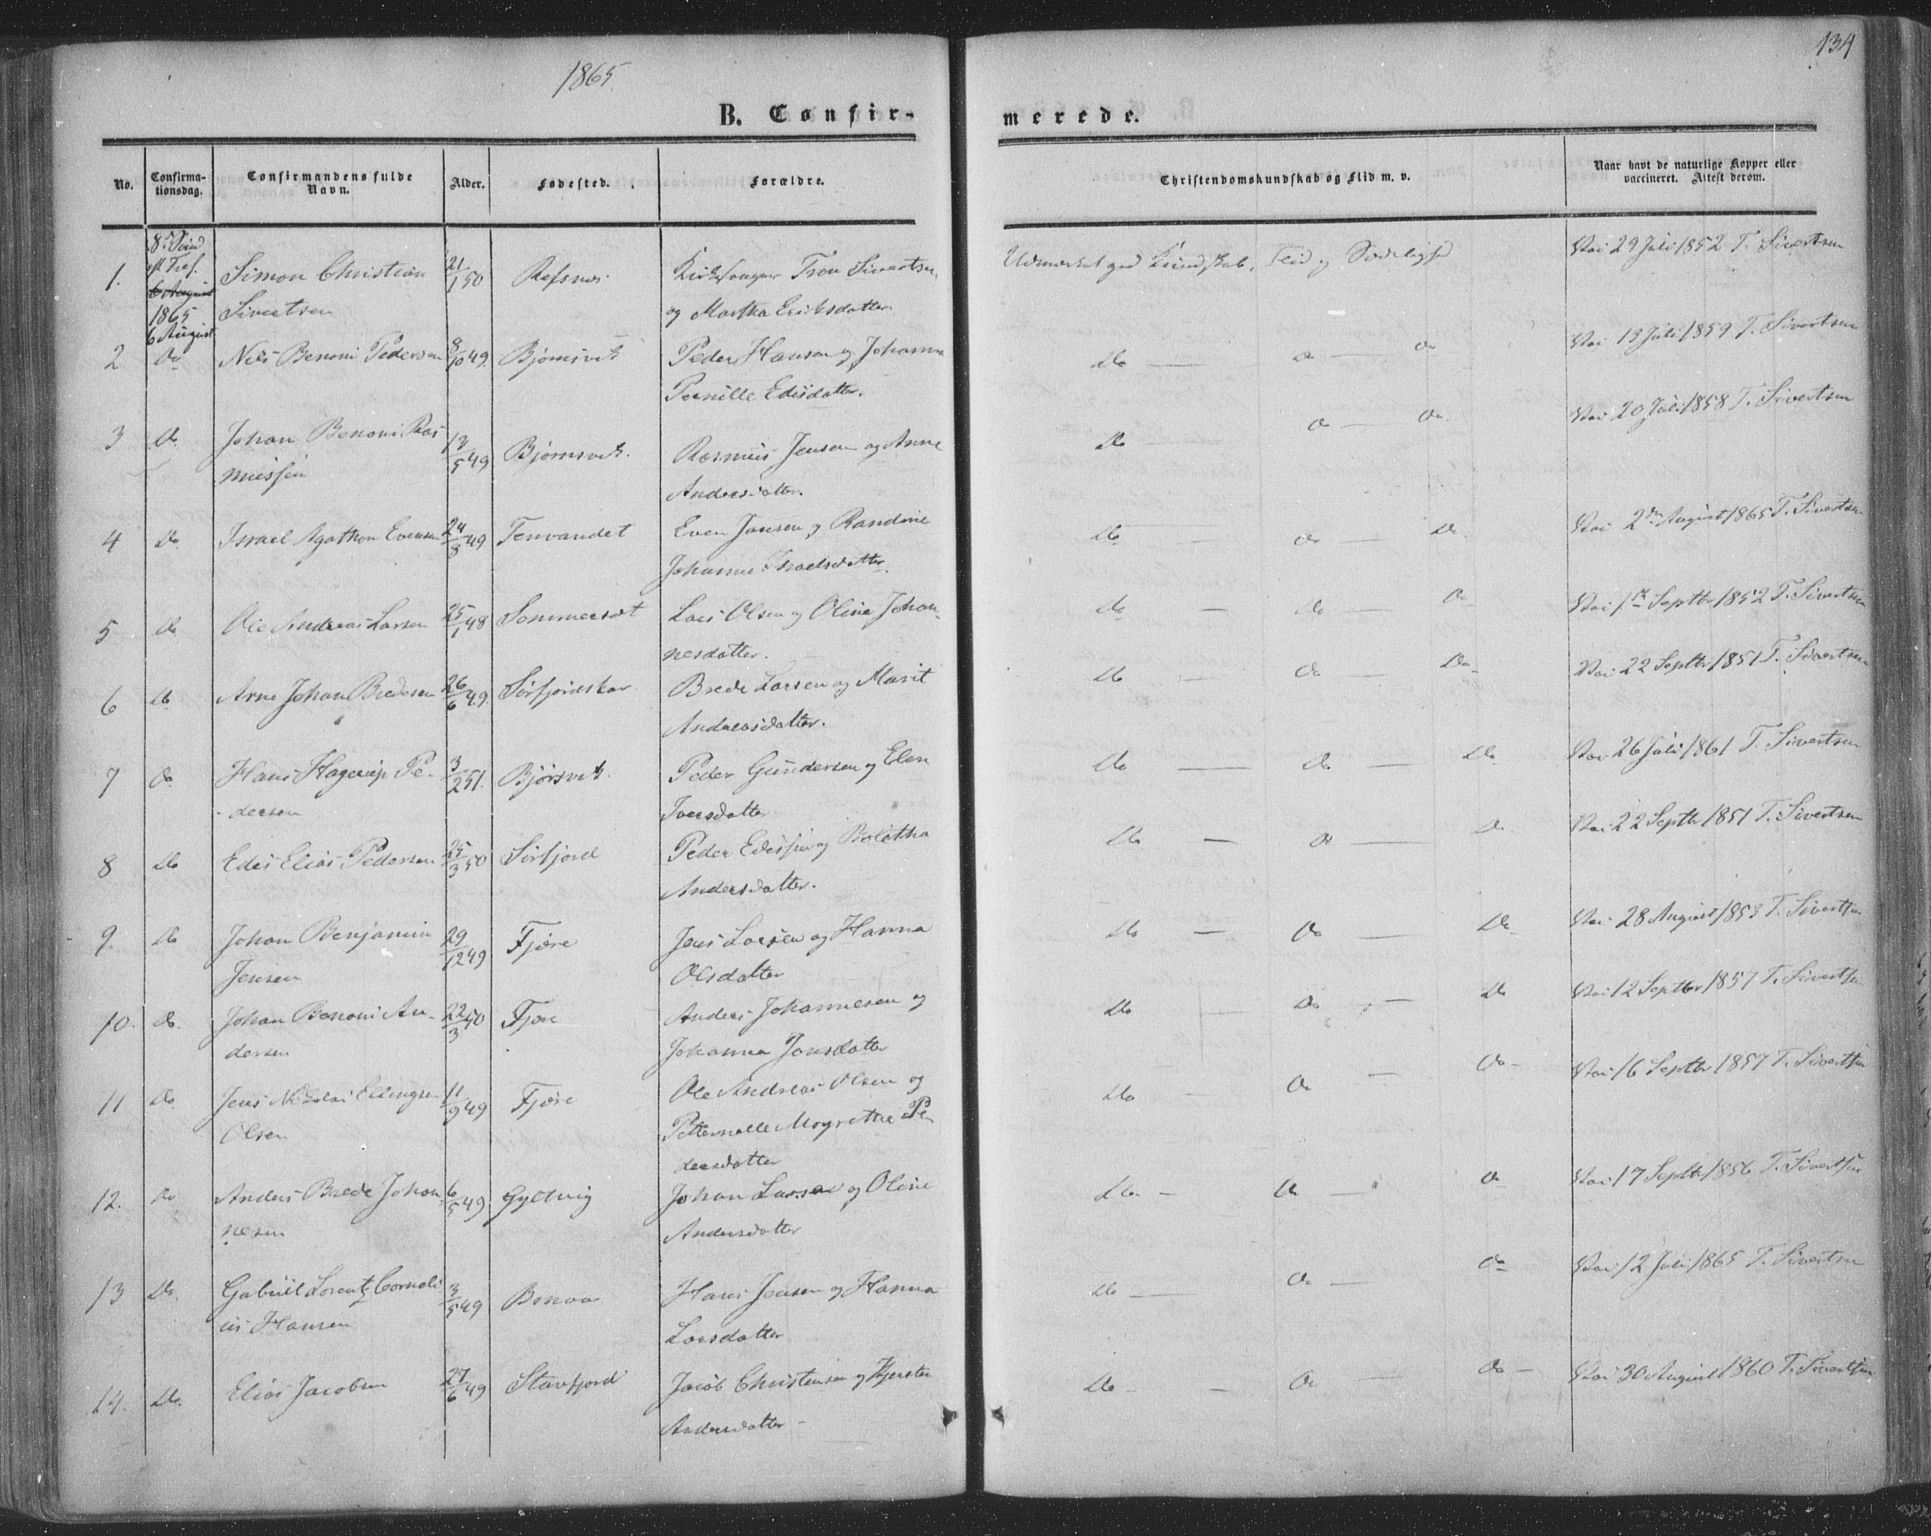 1865.
134
B. Confir-
merede.
No.
Confirma-
tionsdag.
Confirmandens fulde
Navn.
Alder.
Fødested.
Forældre.
Christendomskundskab og Flid m. v.
Naar havt de naturlige Kopper eller
vaccineret. Attest derom.
1. Simon Christian 21/1 50 Refsnes Tron Sivertsen
Sivertsen og Martha Eriksdatter
1865
6 August
Udmærket god Kundskab, Flid og Sædelighed
Vac. 29 Juli 1852 T. Sivertsen
2 Do Nils Benoni Pedersen 8/10 49. Bjørnsvik Peder Hansen og Johanna
Pernille Edisdatter.
Do — Do — Do
Vac. 13 Juli 1859 T. Sivertsen
3 Do. Johan Benoni Ras- 13/5 49 Bjørnsvik. Rasmus Jensen og Anne
mussen Andersdatter.
Do — Do — Do.
Vac. 20 Juli 1858 T. Sivertsen
4 Do Israel Agathon Evensen 24/8 49 Tenvandet Even Jansen og Randine
Johanna Israelsdatter.
Do — Do — Do.
Vac. 2den August 1865 T. Sivertsen
5. Do Ole Andreas Larsen 25/1 48 Sommersæt Lars Olsen og Oline Johan-
nesdatter.
Do — Do — Do
Vac. 1ste Septbr 1852 T. Sivertsen
6 Do Arne Johan Bredesen 26/6 49. Brede Larsen og Marit
Andreasdatter.
Do — Do — Do
Vac. 22 Septbr 1851 T. Sivertsen
7 Do Hans Hagerup Pe- 3/2 51. Bjørsvik. Peder Gundersen og Elen
dersen Iversdatter
Do — Do — Do
Vac. 26 Juli 1861 T. Sivertsen
8 Do Edis Elias Pedersen 25/3 50 Sørfjord Peder Edissen og
Andersdatter.
Do — Do — Do
Vac. 22 Septbr 1851 T. Sivertsen
9. Do Johan Benjamin 29/12 49 Fjære Jens Larsen og Hanna
Jensen Olsdatter
Do — Do — Do
Vac. 28 August 1853 T. Sivertsen
10. Do. Johan Benoni An- 22/3 50 Fjære Anders Johannesen og
dersen Johanna Jonsdatter
Do — Do — Do
Vac. 12 Septbr 1857 T. Sivertsen
11 Do Jens Nikolai Ellingsen 11/9 49 Fjære Ole Andreas Olsen og
Olsen Petternelle Magrethe Pe
dersdatter
Do — Do — Do
Vac. 16 Septbr 1857 T. Sivertsen
12. Do Anders Brede Johan 6/5 49 Gyltvig Johan Larsen og Oline
nesen Andersdatter
Do — Do — Do
Vac. 17 Septbr 1856 T. Sivertsen
13 Do. Gabriel Lorentz Corneli 3/5 49 Hans Jensen og Hanna
us Hansen Larsdatter
Do — Do — Do
Vac. 12 Juli 1865 T. Sivertsen
14. Do. Elias Jacobsen 27/6 49 Stavfjord Jacob Christensen og
Andersdatter
Do — Do — Do
Vac. 30 August 1860 T. Sivertsen